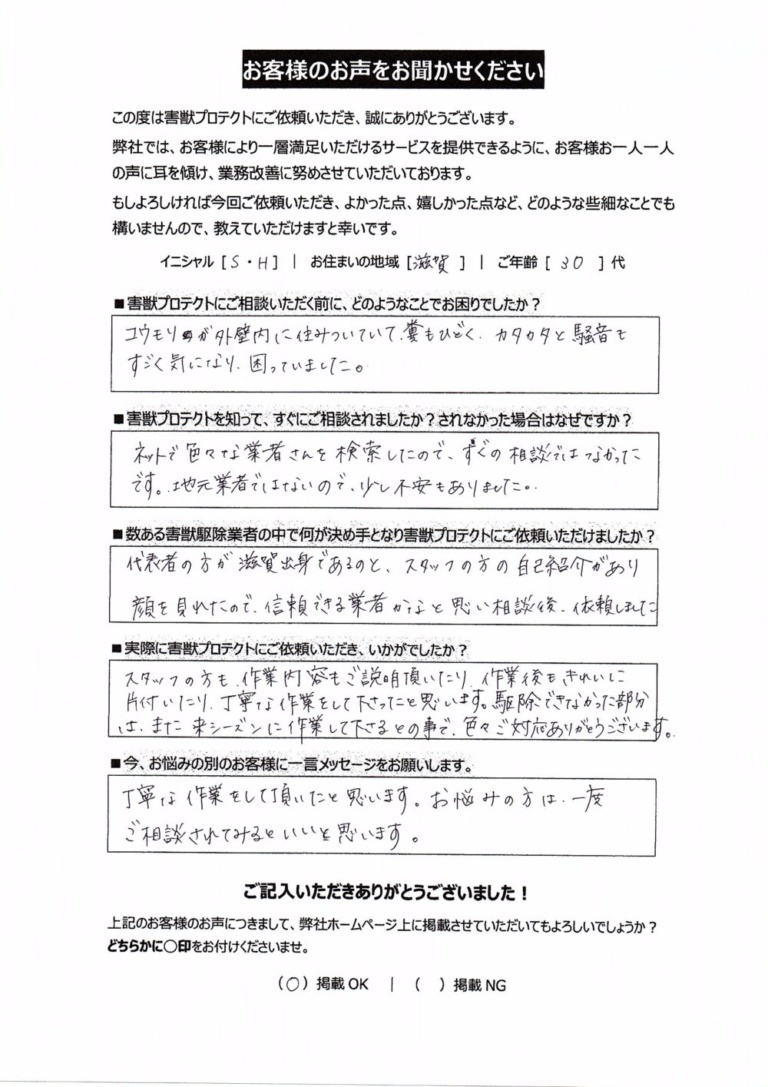 お客様のお声をお聞かせください
この度は害獣プロテクトにご依頼いただき、誠にありがとうございます。
弊社では、お客様により一層満足いただけるサービスを提供できるように、お客様お一人一人
の声に耳を傾け、業務改善に努めさせていただいております。
もしよろしければ今回ご依頼いただき、よかった点、嬉しかった点など、どのような些細なことでも
構いませんので、教えていただけますと幸いです。
イニシャル [ S・H ] | お住まいの地域 [ 滋賀 ] | ご年齢 [ 30 ] 代
■害獣プロテクトにご相談いただく前に、どのようなことでお困りでしたか？
コウモリが外壁内に住みついていて、糞もひどく、カタカタと騒音も
すごく気になり、困っていました。
■害獣プロテクトを知って、すぐにご相談されましたか？されなかった場合はなぜですか？
ネットで色々な業者さんを検索したので、すぐの相談ではなかった
です。地元業者ではないので、少し不安もありました。
■数ある害獣駆除業者の中で何が決め手となり害獣プロテクトにご依頼いただけましたか？
代表者の方が滋賀出身であるのと、スタッフの方の自己紹介があり
顔を見れたので、信頼できる業者かなと思い相談後、依頼しました
■実際に害獣プロテクトにご依頼いただき、いかがでしたか？
スタッフの方も、作業内容もご説明頂いたり、作業後もきれいに
片付いたり、丁寧な作業をして下さったと思います。駆除できなかった部分
は、また来シーズンに作業して下さるとの事で、色々ご対応ありがとうございます。
■今、お悩みの別のお客様に一言メッセージをお願いします。
丁寧な作業をして頂いたと思います。お悩みの方は、一度
ご相談されてみるといいと思います。
ご記入いただきありがとうございました！
上記のお客様のお声につきまして、弊社ホームページ上に掲載させていただいてもよろしいでしょうか？
どちらかに〇印をお付けくださいませ。
(〇) 掲載 OK | ( ) 掲載 NG